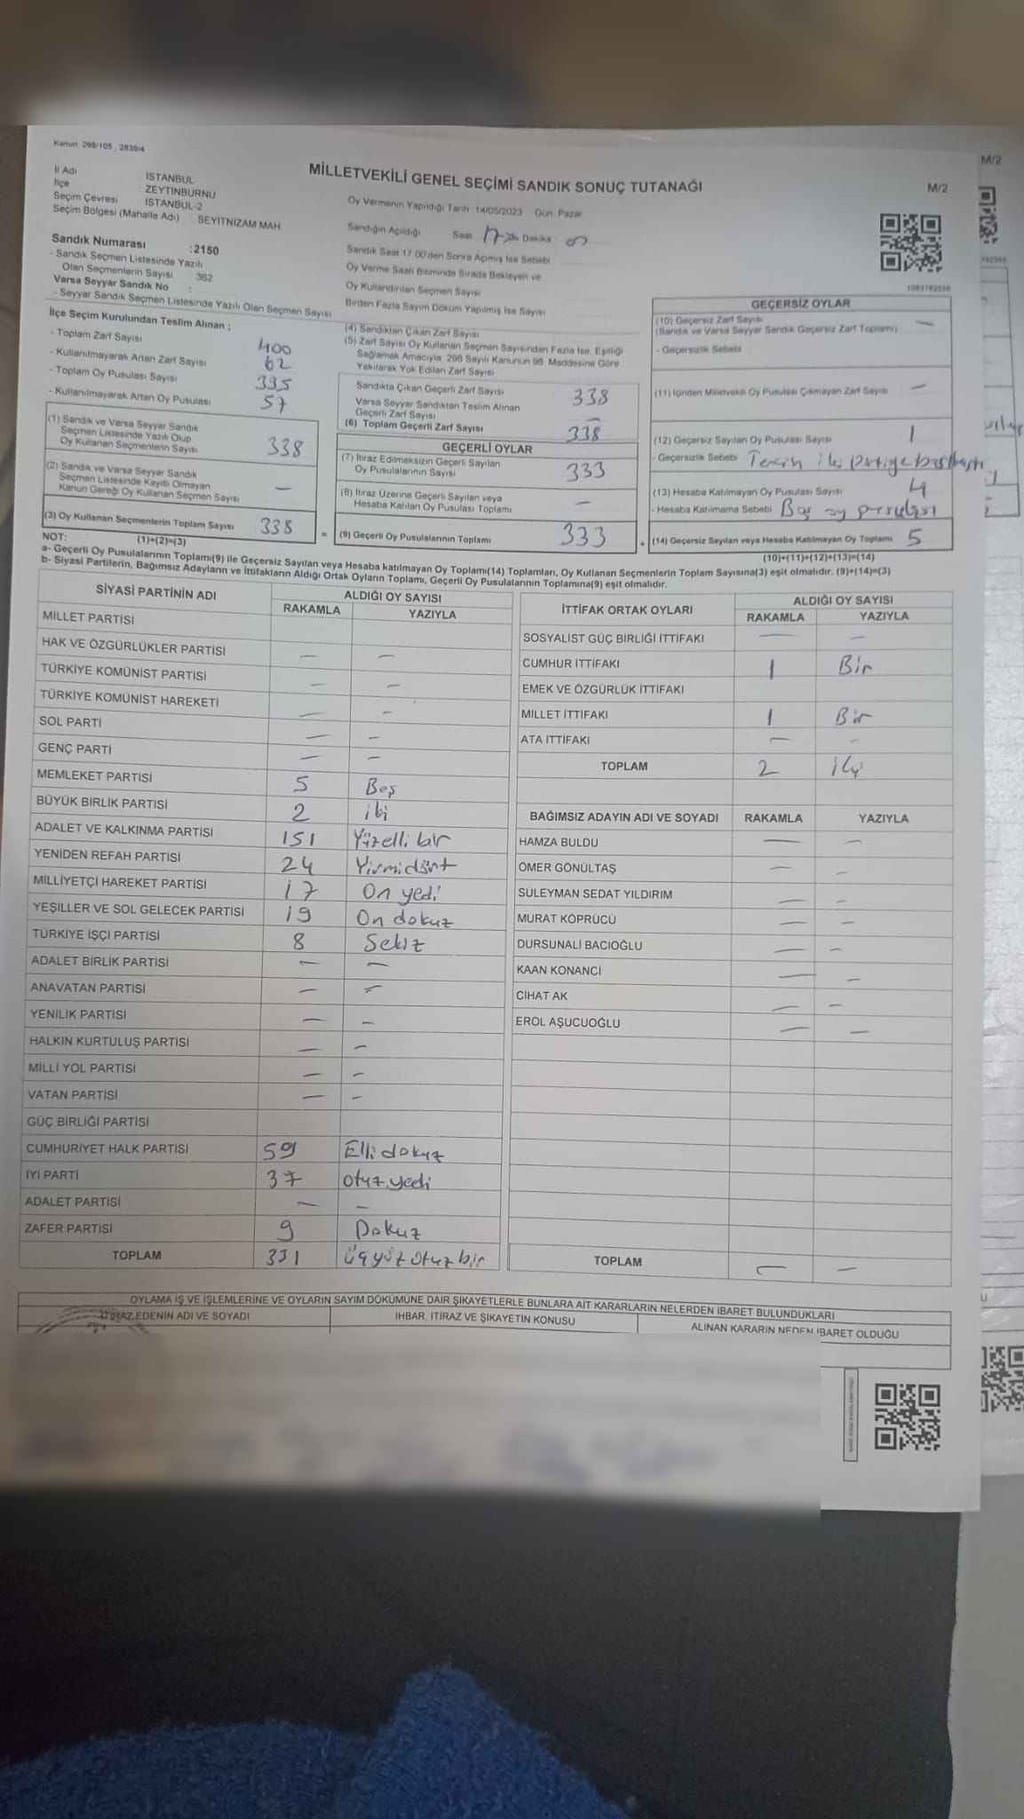 Kanun: 298/105, 2839/4
M/2
MİLLETVEKİLİ GENEL SEÇİMİ SANDIK SONUÇ TUTANAĞI
M/2
İl Adı İSTANBUL
İlçe ZEYTİNBURNU
Seçim Çevresi İSTANBUL-2
Seçim Bölgesi (Mahalle Adı) SEYİTNİZAM MAH
Oy Vermenin Yapıldığı Tarih: 14/05/2023 Gün: Pazar
Sandığın Açıldığı Saat 17 Dakika
Sandık Saat 17.00'den Sonra Açılmış İse Sebebi
Oy Verme Saati Bitiminde Sırada Bekleyen ve
Oy Kullandırılan Seçmen Sayısı
Birden Fazla Sayım Döküm Yapılmış İse Sayısı
Sandık Numarası :2150
- Sandık Seçmen Listesinde Yazılı
Olan Seçmenlerin Sayısı : 362
Varsa Seyyar Sandık No :
- Seyyar Sandık Seçmen Listesinde Yazılı Olan Seçmen Sayısı
İlçe Seçim Kurulundan Teslim Alınan ;
- Toplam Zarf Sayısı 400
- Kullanılmayarak Artan Zarf Sayısı 62
- Toplam Oy Pusulası Sayısı 335
- Kullanılmayarak Artan Oy Pusulası 57
(1) Sandık ve Varsa Seyyar Sandık
Seçmen Listesinde Yazılı Olup
Oy Kullanan Seçmenlerin Sayısı 338
(2) Sandık ve Varsa Seyyar Sandık
Seçmen Listesinde Kayıtlı Olmayan
Kanun Gereği Oy Kullanan Seçmen Sayısı —
(3) Oy Kullanan Seçmenlerin Toplam Sayısı 338
(1)+(2)=(3)
(4) Sandıktan Çıkan Zarf Sayısı
(5) Zarf Sayısı Oy Kullanan Seçmen Sayısından Fazla İse, Eşitliği
Sağlamak Amacıyla, 298 Sayılı Kanunun 98. Maddesine Göre
Yakılarak Yok Edilen Zarf Sayısı
Sandıkta Çıkan Geçerli Zarf Sayısı 338
Varsa Seyyar Sandıktan Teslim Alınan
Geçerli Zarf Sayısı —
(6) Toplam Geçerli Zarf Sayısı 338
GEÇERLİ OYLAR
(7) İtiraz Edilmeksizin Geçerli Sayılan
Oy Pusulalarının Sayısı 333
(8) İtiraz Üzerine Geçerli Sayılan veya
Hesaba Katılan Oy Pusulası Toplamı —
= (9) Geçerli Oy Pusulalarının Toplamı 333
GEÇERSİZ OYLAR
(10) Geçersiz Zarf Sayısı —
(Sandık ve Varsa Seyyar Sandık Geçersiz Zarf Toplamı)
- Geçersizlik Sebebi
(11) İçinden Milletvekili Oy Pusulası Çıkmayan Zarf Sayısı —
(12) Geçersiz Sayılan Oy Pusulası Sayısı 1
- Geçersizlik Sebebi Tercih iki partiye
(13) Hesaba Katılmayan Oy Pusulası Sayısı 4
- Hesaba Katılmama Sebebi Boş oy pusulası
+ (14) Geçersiz Sayılan veya Hesaba Katılmayan Oy Toplamı 5
(10)+(11)+(12)+(13)=(14)
NOT:
a- Geçerli Oy Pusulalarının Toplamı(9) ile Geçersiz Sayılan veya Hesaba katılmayan Oy Toplamı(14) Toplamları, Oy Kullanan Seçmenlerin Toplam Sayısına(3) eşit olmalıdır. (9)+(14)=(3)
b- Siyasi Partilerin, Bağımsız Adayların ve İttifakların Aldığı Ortak Oyların Toplamı, Geçerli Oy Pusulalarının Toplamına(9) eşit olmalıdır.
SİYASİ PARTİNİN ADI ALDIĞI OY SAYISI
RAKAMLA YAZIYLA
MİLLET PARTİSİ
HAK VE ÖZGÜRLÜKLER PARTİSİ — —
TÜRKİYE KOMÜNİST PARTİSİ — —
TÜRKİYE KOMÜNİST HAREKETİ — —
SOL PARTİ — —
GENÇ PARTİ — —
MEMLEKET PARTİSİ 5 Beş
BÜYÜK BİRLİK PARTİSİ 2 iki
ADALET VE KALKINMA PARTİSİ 151 Yüzelli bir
YENİDEN REFAH PARTİSİ 24 Yirmidört
MİLLİYETÇİ HAREKET PARTİSİ 17 On yedi
YEŞİLLER VE SOL GELECEK PARTİSİ 19 On dokuz
TÜRKİYE İŞÇİ PARTİSİ 8 Sekiz
ADALET BİRLİK PARTİSİ — —
ANAVATAN PARTİSİ — —
YENİLİK PARTİSİ — —
HALKIN KURTULUŞ PARTİSİ — —
MİLLİ YOL PARTİSİ — —
VATAN PARTİSİ — —
GÜÇ BİRLİĞİ PARTİSİ
CUMHURİYET HALK PARTİSİ 59 Elli dokuz
İYİ PARTİ 37 otuz yedi
ADALET PARTİSİ — —
ZAFER PARTİSİ 9 Dokuz
TOPLAM 331 üçyüz otuz bir
İTTİFAK ORTAK OYLARI ALDIĞI OY SAYISI
RAKAMLA YAZIYLA
SOSYALİST GÜÇ BİRLİĞİ İTTİFAKI — —
CUMHUR İTTİFAKI 1 Bir
EMEK VE ÖZGÜRLÜK İTTİFAKI
MİLLET İTTİFAKI 1 Bir
ATA İTTİFAKI — —
TOPLAM 2 iki
BAĞIMSIZ ADAYIN ADI VE SOYADI RAKAMLA YAZIYLA
HAMZA BULDU — —
ÖMER GÖNÜLTAŞ — —
SÜLEYMAN SEDAT YILDIRIM — —
MURAT KÖPRÜCÜ — —
DURSUNALİ BACIOĞLU — —
KAAN KONANCİ — —
CİHAT AK — —
EROL AŞUCUOĞLU — —
TOPLAM — —
OYLAMA İŞ VE İŞLEMLERİNE VE OYLARIN SAYIM DÖKÜMÜNE DAİR ŞİKAYETLERLE BUNLARA AİT KARARLARIN NELERDEN İBARET BULUNDUKLARI
İTİRAZ EDENİN ADI VE SOYADI İHBAR, İTİRAZ VE ŞİKAYETİN KONUSU ALINAN KARARIN NEDEN İBARET OLDUĞU